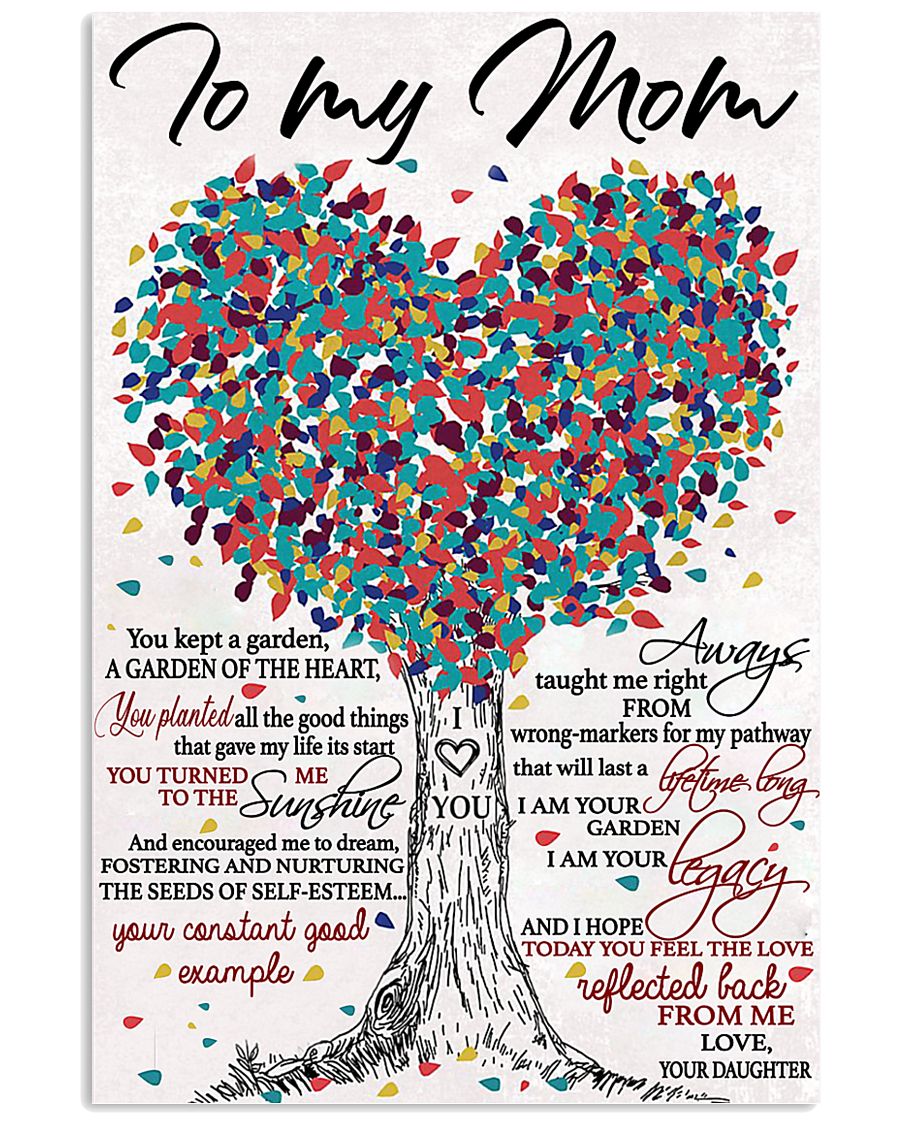 To my Mom
You kept a garden,
A GARDEN OF THE HEART,
You planted all the good things
that gave my life its start
YOU TURNED ME
TO THE Sunshine
And encouraged me to dream,
FOSTERING AND NURTURING
THE SEEDS OF SELF-ESTEEM...
your constant good
example
I
YOU
Aways
taught me right
FROM
wrong-markers for my pathway
that will last a lifetime long
I AM YOUR
GARDEN
I AM YOUR legacy
AND I HOPE
TODAY YOU FEEL THE LOVE
reflected back
FROM ME
LOVE,
YOUR DAUGHTER